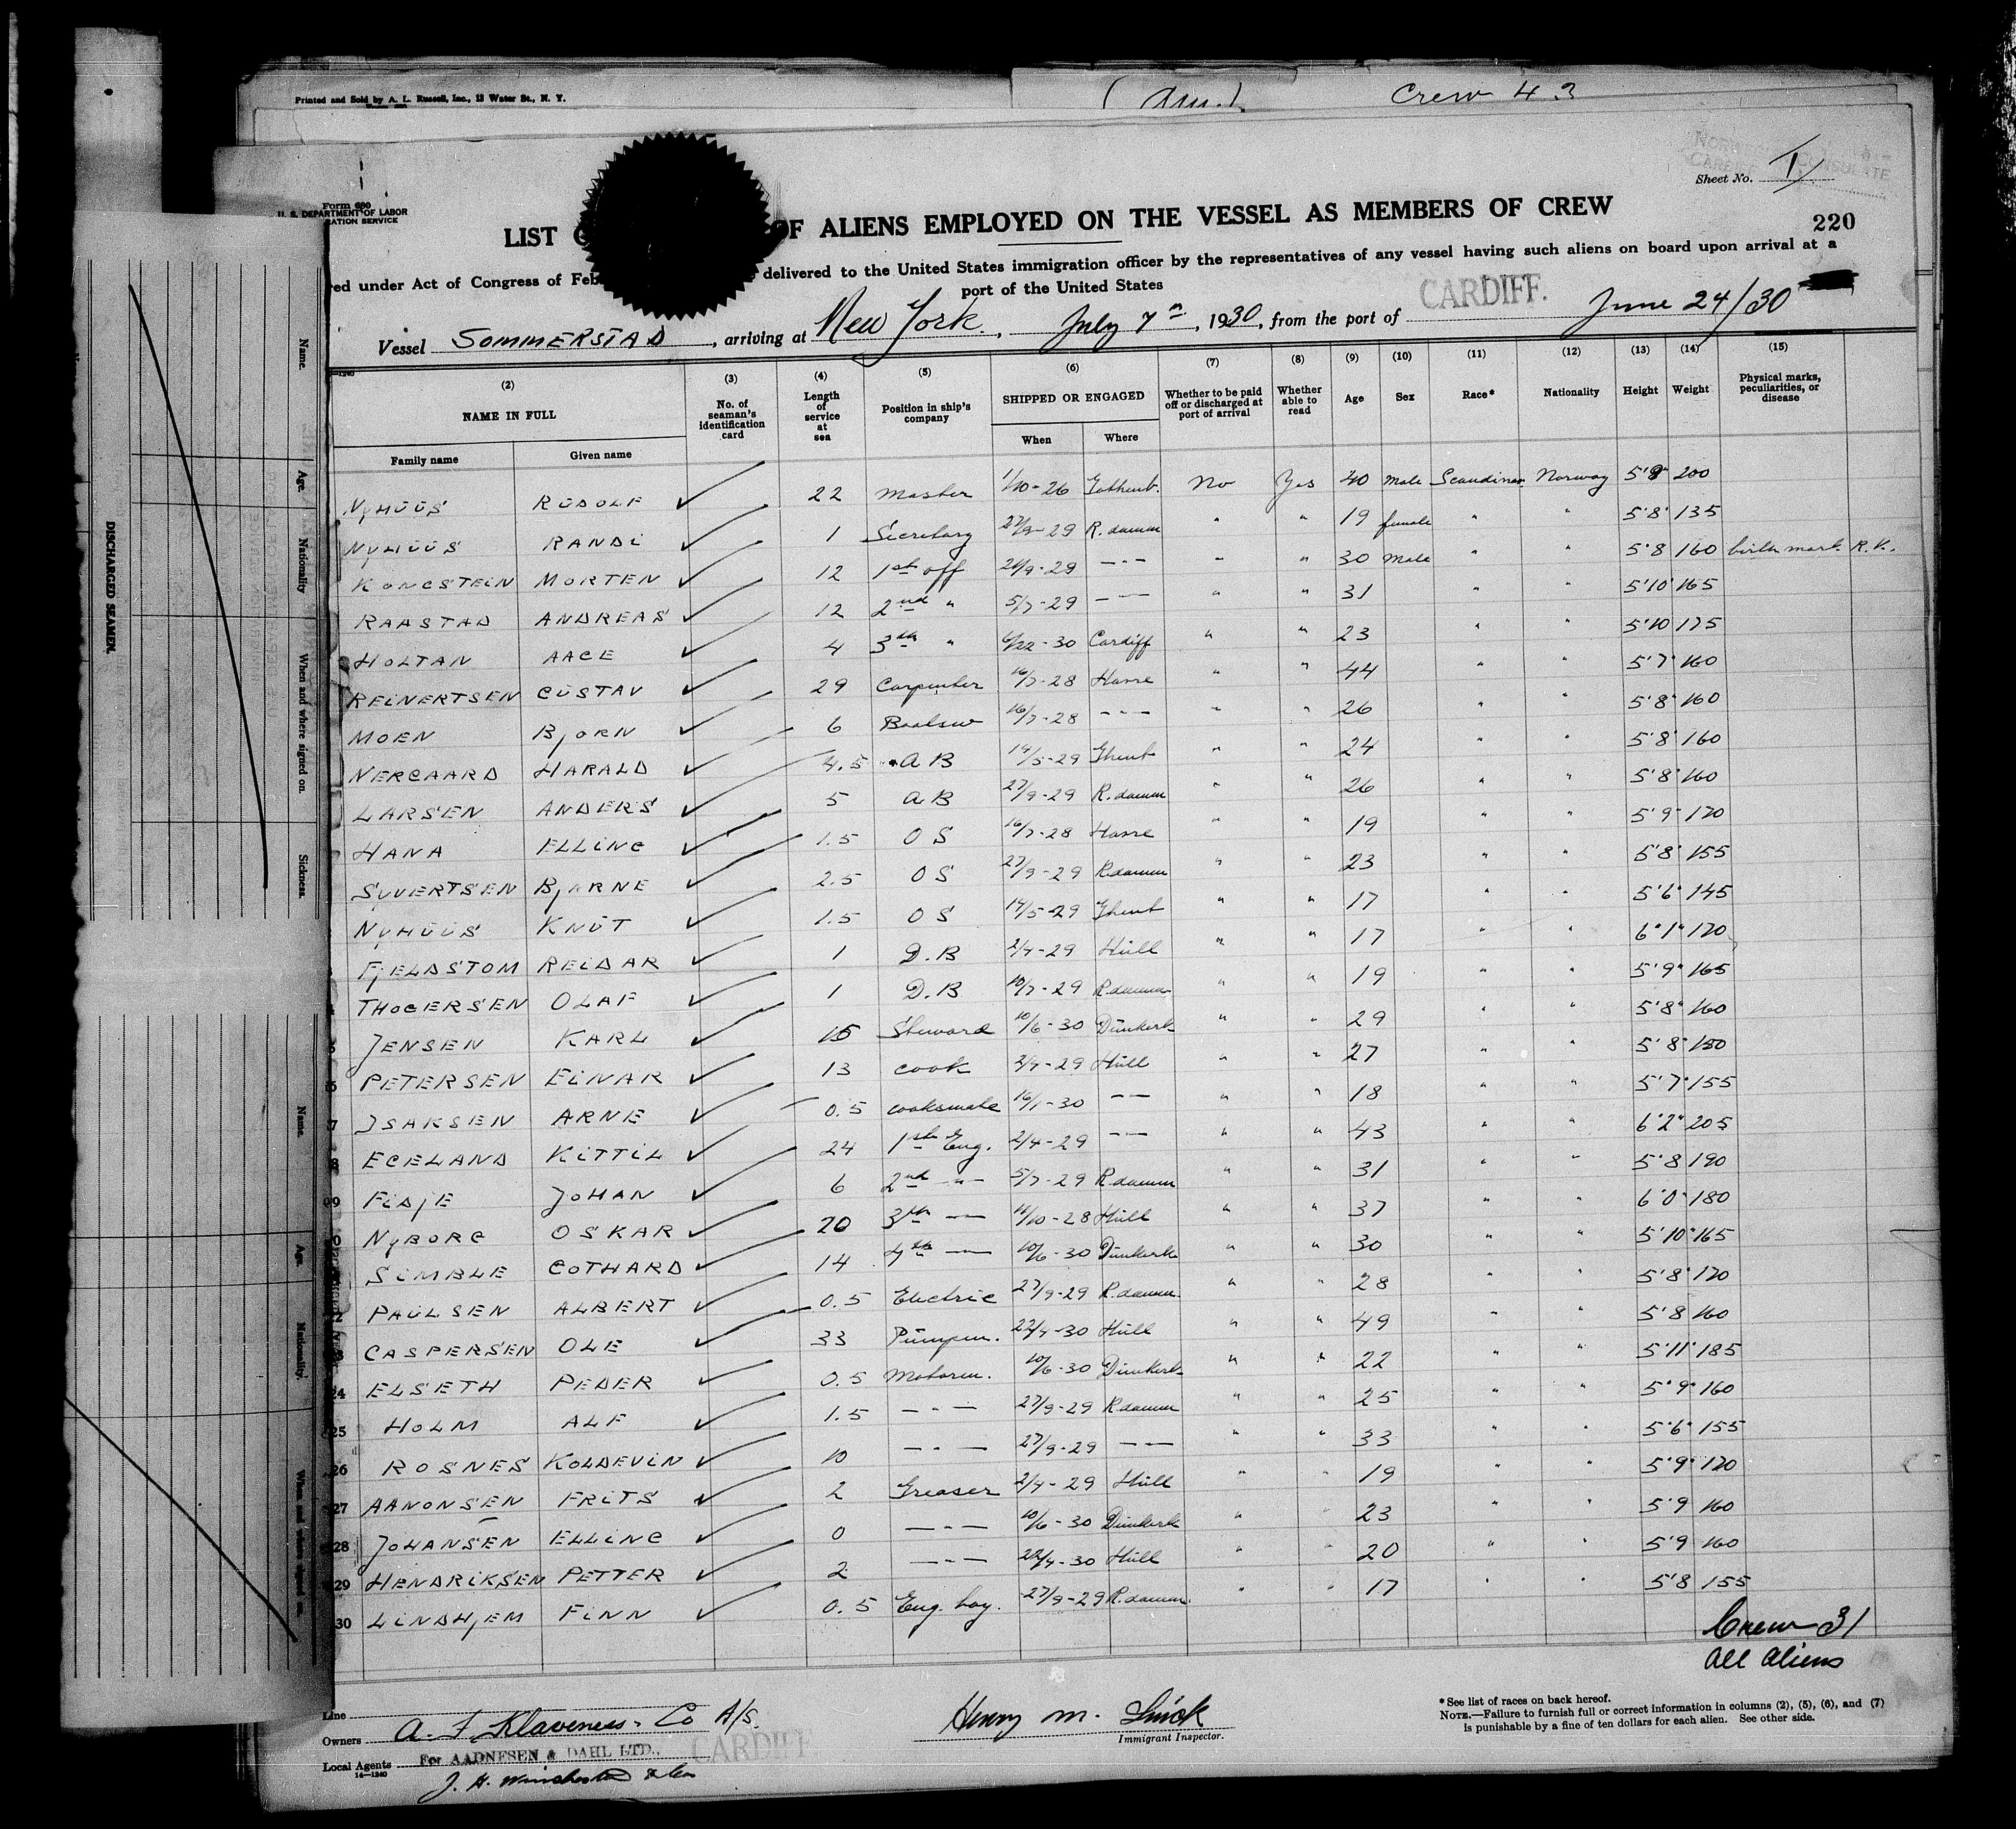 Printed and Sold by A. L. Russell, Inc., 13 Water St., N. Y.
Crew 43
Sheet No. I
NORWEGIAN CONSULATE
CARDIFF
Form 680
U. S. DEPARTMENT OF LABOR
RATION SERVICE
220
LIST O OF ALIENS EMPLOYED ON THE VESSEL AS MEMBERS OF CREW
red under Act of Congress of Feb delivered to the United States immigration officer by the representatives of any vessel having such aliens on board upon arrival at a
port of the United States
Vessel SOMMERSTAD, arriving at New York, July 7th, 1930, from the port of CARDIFF. June 24/30
(2) (3) (4) (5) (6) (7) (8) (9) (10) (11) (12) (13) (14) (15)
NAME IN FULL No. of seaman's identification card Length of service at sea Position in ship's company SHIPPED OR ENGAGED Whether to be paid off or discharged at port of arrival Whether able to read Age Sex Race* Nationality Height Weight Physical marks, peculiarities, or disease
Family name Given name When Where
NYHUUS RUDOLF 22 Master 1/10-26 Gothenb. No Yes 40 Male Scandinav Norway 5'9" 200
NYHUUS RANDI 1 Secretary 27/9-29 R.damm " " 19 female " " 5'8" 135
KONGSTEIN MORTEN 12 1st off 21/9-29 -"- " " 30 Male " " 5'8 160 birth mark R.K.
RAASTAD ANDREAS 12 2nd " 5/7-29 -"- " " 31 " " 5'10" 165
HOLTAN AAGE 4 3th " 6/22-30 Cardiff " " 23 " " 5'10 175
REINERTSEN GUSTAV 29 Carpenter 16/7-28 Havre " " 44 " " 5'7" 160
MOEN BJORN 6 Boatsw 16/7-28 -"- " " 26 " " 5'8" 160
NERGAARD HARALD 4.5 AB 14/5-29 Ghent " " 24 " " 5'8" 160
LARSEN ANDERS 5 AB 27/9-29 R.damm " " 26 " " 5'8" 160
HANA ELLING 1.5 OS 16/7-28 Havre " " 19 " " 5'9" 170
SYVERTSEN BJARNE 2.5 OS 27/9-29 R.damm " " 23 " " 5'8" 155
NYHUUS KNUT 1.5 OS 14/5-29 Ghent " " 17 " " 5'6" 145
FJELDSTOM REIDAR 1 D.B 2/4-29 Hull " " 17 " " 6'1" 170
THOGERSEN OLAF 1 D.B 10/7-29 R.damm " " 19 " " 5'9" 165
JENSEN KARL 15 Steward 10/6-30 Dunkerk " " 29 " " 5'8" 160
PETERSEN EINAR 13 cook 2/4-29 Hull " " 27 " " 5'8" 150
ISAKSEN ARNE 0.5 cooksmate 16/1-30 -"- " " 18 " " 5'7" 155
EGELAND KITTIL 24 1st Eng. 2/4-29 -"- " " 43 " " 6'2" 205
FIDJE JOHAN 6 2nd -"- 5/7-29 R.damm " " 31 " " 5'8 190
NYBORG OSKAR 20 3th -"- 16/10-28 Hull " " 37 " " 6'0" 180
SIMBLE GOTHARD 14 4th -"- 10/6-30 Dunkerk " " 30 " " 5'10" 165
PAULSEN ALBERT 0.5 Electric 27/9-29 R.damm. " " 28 " " 5'8" 170
CASPERSEN OLE 33 Pumpm. 22/4-30 Hull " " 49 " " 5'8 160
24 ELSETH PEDER 0.5 Motorm. 10/6-30 Dunkerk " " 22 " " 5'11" 185
25 HOLM ALF 1.5 -"- 27/9-29 R.damm " " 25 " " 5'9" 160
26 ROSNES KOLDEVIN 10 -"- 27/9-29 -"- " " 33 " " 5'6" 155
27 AANONSEN FRITS 2 Greaser 2/4-29 Hull " " 19 " " 5'9" 170
28 JOHANSEN ELLING 0 -"- 10/6-30 Dunkerk " " 23 " " 5'9 160
29 HENDRIKSEN PETTER 2 -"- 22/4-30 Hull " " 20 " " 5'9 160
30 LINDHJEM FINN 0.5 Eng. boy. 27/9-29 R.damm. " " 17 " " 5'8 155
Crew 31
All aliens
Line
Owners A. F. Klaveness Co A/S.
Local Agents For AADNESEN & DAHL LTD., CARDIFF
14-1240
J. H. Winchester & Co
Henry M.
Immigrant Inspector.
*See list of races on back hereof.
NOTE.—Failure to furnish full or correct information in columns (2), (5), (6), and (7)
is punishable by a fine of ten dollars for each alien. See other side.
DISCHARGED SEAMEN.
Name.
Age.
Nationality
When and where signed on.
Sickness.
Name.
Age.
Nationality.
When and where signed on.